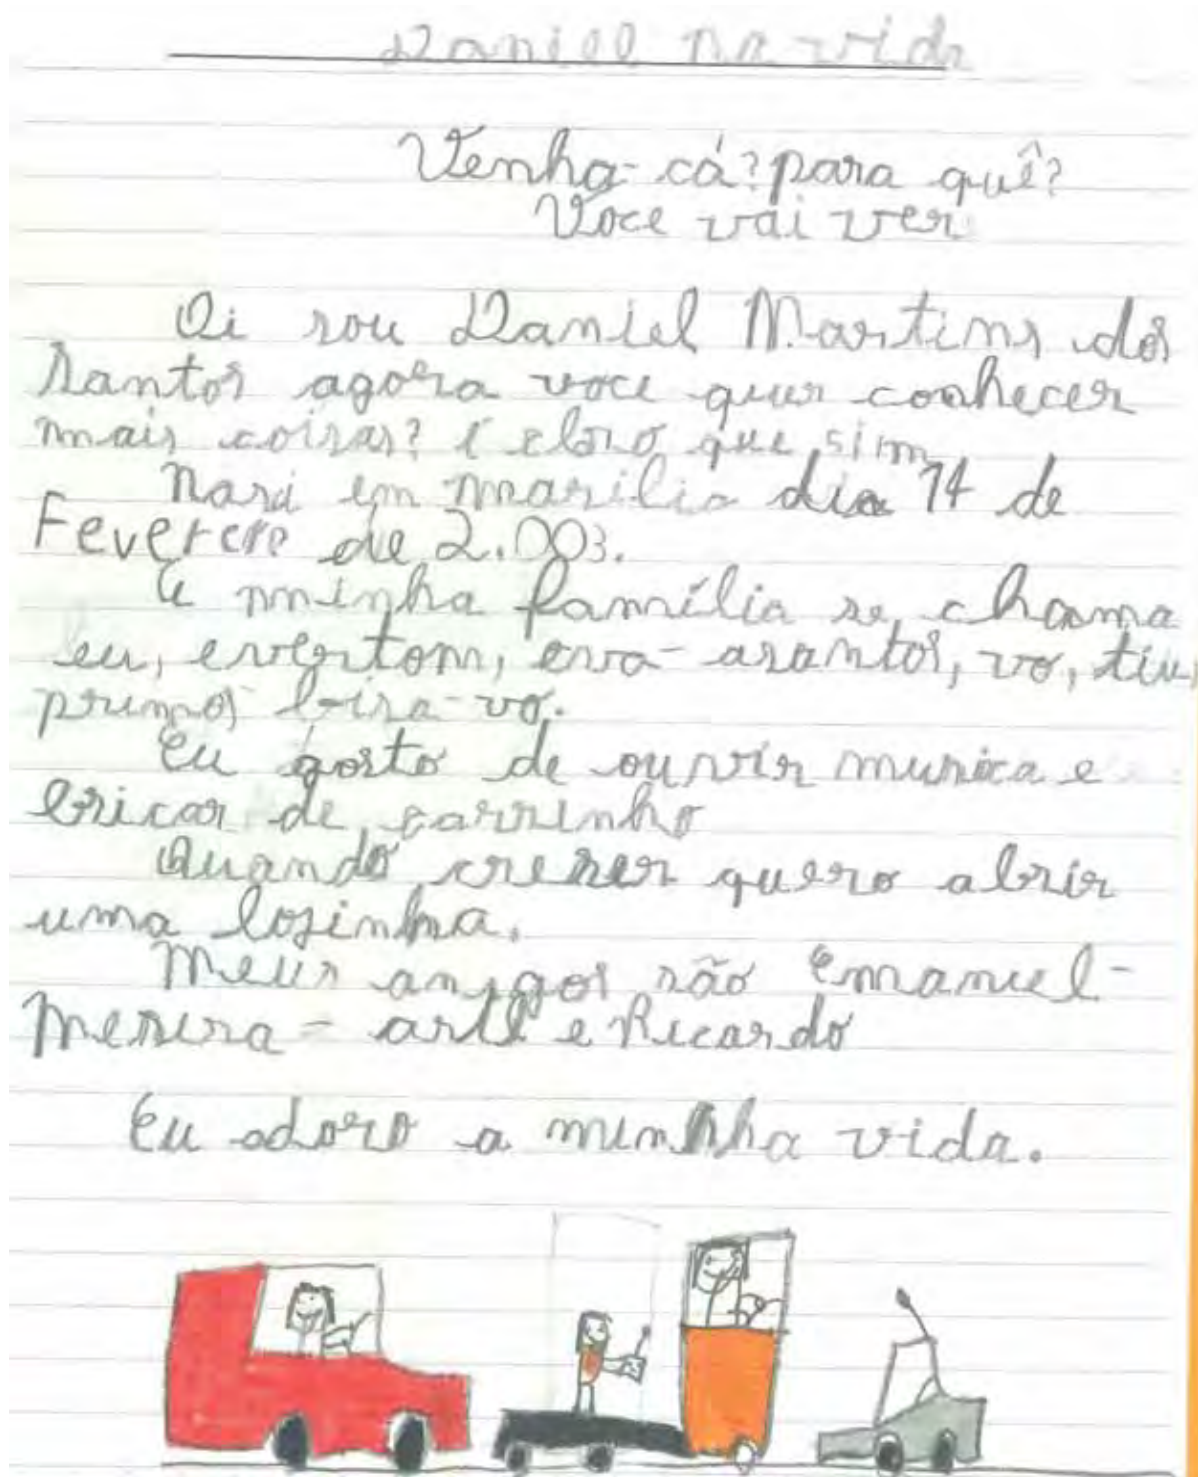 Daniel na vida
Venha cá? para quê?
Voce vai ver
Oi sou Daniel Martins dos
Santos agora voce quer conhecer
mais coisas? é claro que sim
Nasi em marilia dia 14 de
Feverero de 2.003.
A minha família se chama
eu, evertom, eva-asantos, vo, tiu,
primos bisa-vo.
Eu gosto de ouvir musica e
bricar de carrinho
Quando creser quero abrir
uma losinha.
Meus amigos são Emanuel-
e Ricardo
Eu adoro a minha vida.